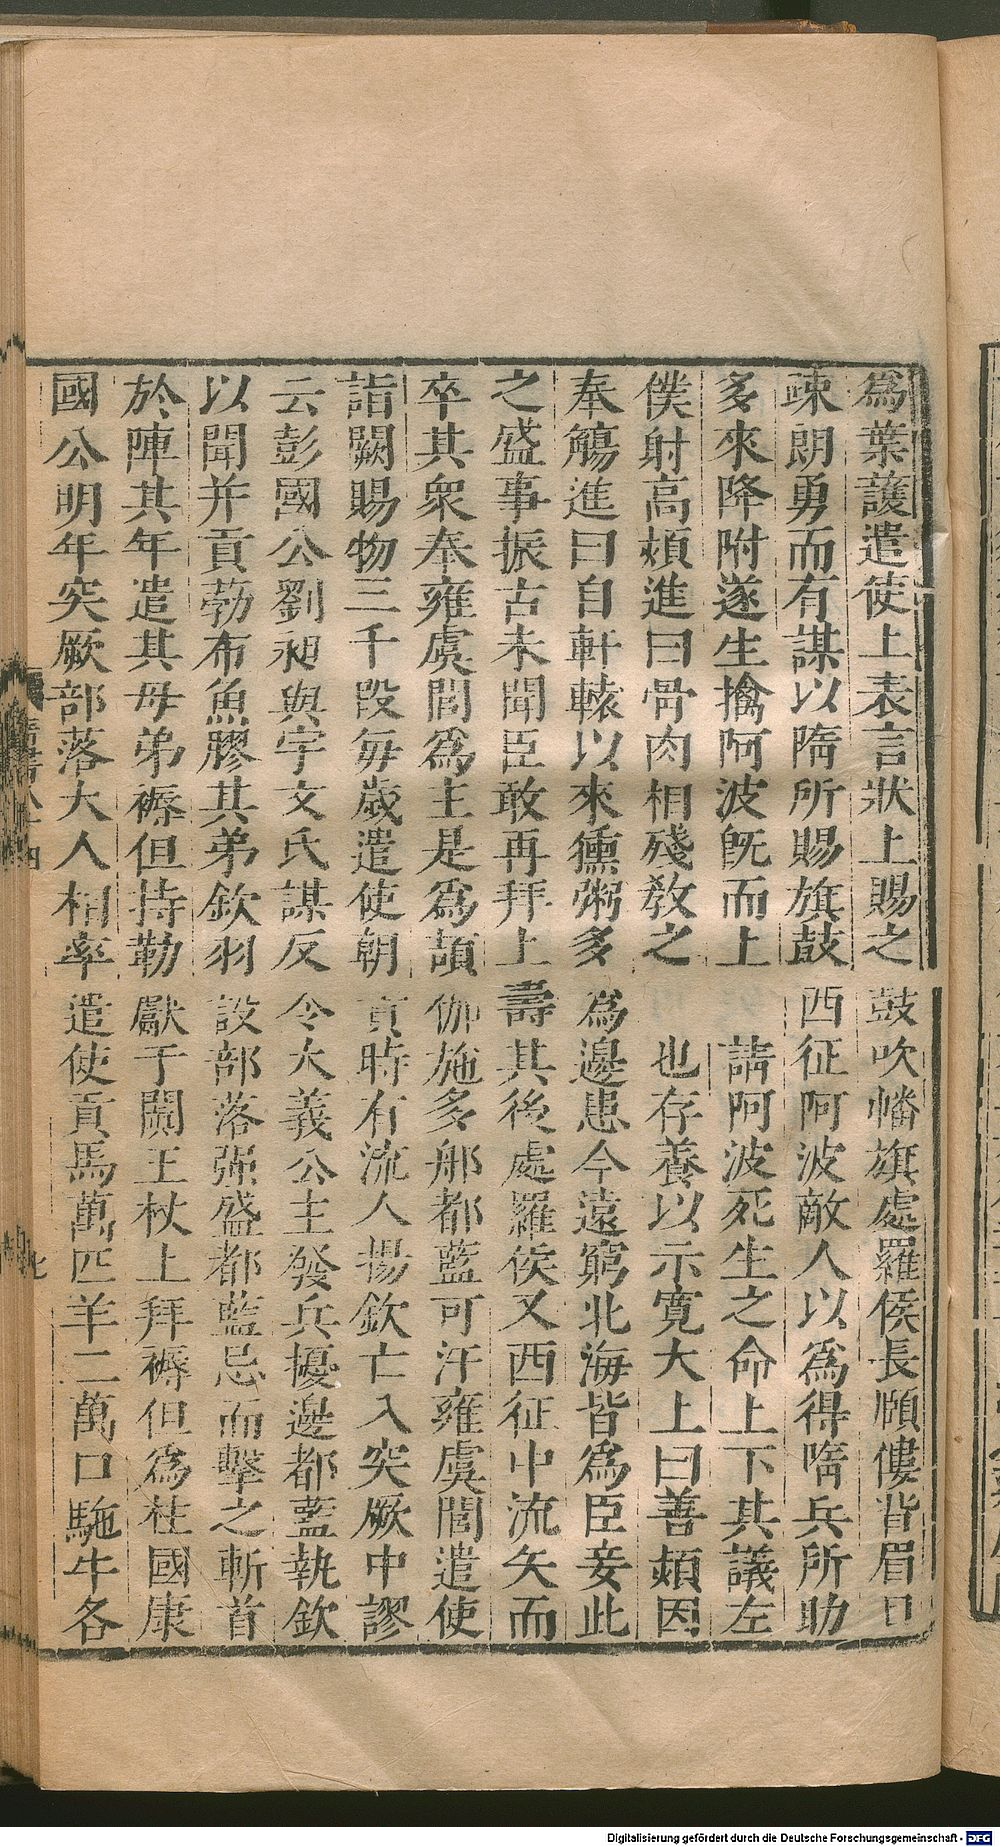 爲葉護遣使上表言狀上賜之鼓吹幡旗處羅侯長頤僂背眉目
疎朗勇而有謀以隋所賜旗鼓西征阿波敵人以爲得隋兵所助
多來降附遂生擒阿波旣而上請阿波死生之命上下其議左
僕射高熲進曰骨肉相殘敎之也存養以示寬大上曰善熲因
奉觴進曰自軒轅以來獯粥多爲邊患今遠窮北海皆爲臣妾此
之盛事振古未聞臣敢再拜上壽其後處羅侯又西征中流矢而
卒其衆奉雍虞閭爲主是爲頡伽施多那都藍可汗雍虞閭遣使
詣闕賜物三千段每歲遣使朝貢時有流人揚欽亡入突厥中謬
云彭國公劉昶與宇文氏謀反令大義公主發兵擾邊都藍執欽
以聞并貢勃布魚膠其弟欽羽設部落强盛都藍忌而擊之斬首
於陣其年遣其母弟褥但持勒獻于闐王杖上拜褥但爲柱國康
國公明年突厥部落大人相率遣使貢馬萬匹羊二萬口駞牛各
Digitalisierung gefördert durch die Deutsche Forschungsgemeinschaft - DFG